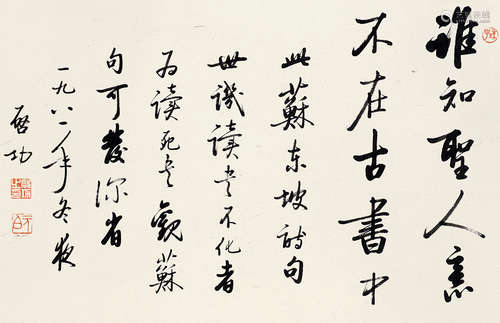 誰知聖人意
不在古書中
此蘇東坡詩句
世譏讀書不化者
為讀死書觀蘇
句可發深省
一九八一年冬夜
啟功